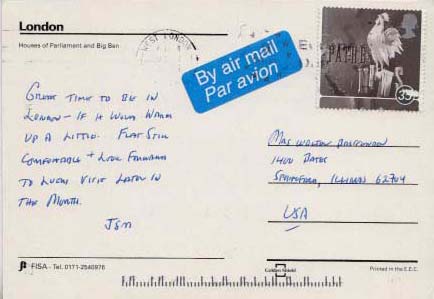 London
Houses of Parliament and Big Ben
WEST LONDON
By air mail
Par avion
GREAT TIME TO BE IN
LONDON – IF IT WOULD WARM
UP A LITTLE. FLAT STILL
COMFORTABLE + LOOK FORWARD
TO LUCKY VISIT LATER IN
THE MONTH.
MRS WALTON
1400 BATES
SPRINGFIELD, ILLINOIS 62704
USA
FISA - Tel. 0171-2540976
Golden Shield
Printed in the E.E.C.